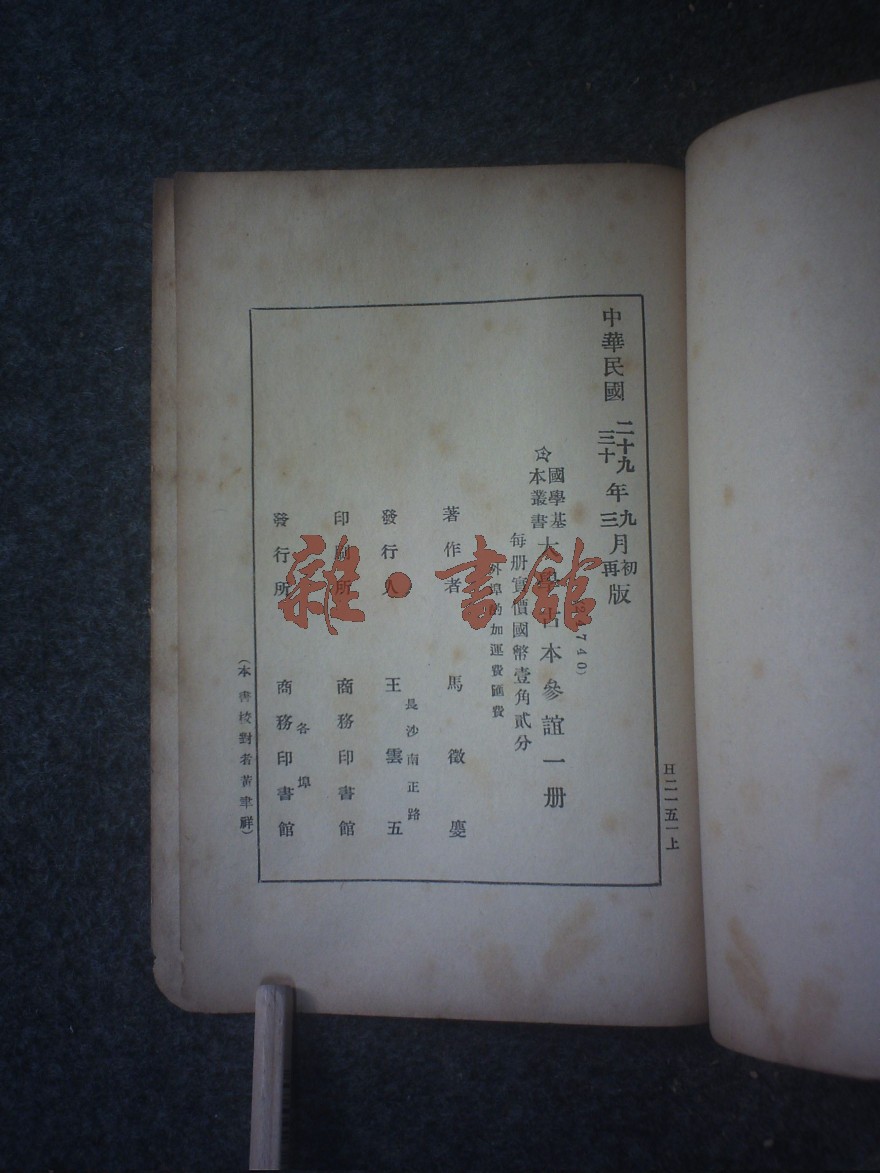 中華民國二十九年九月初版
三十 三 再
國學基
本叢書
大學古本參誼一册
740)
每册實價國幣壹角貳分
外埠酌加運費匯費
著作者 馬徵慶
發行人 王雲五
長沙南正路
印刷所 商務印書館
發行所 商務印書館
各埠
(本書校對者黃聿祥)
H二一五一上
雜·書館